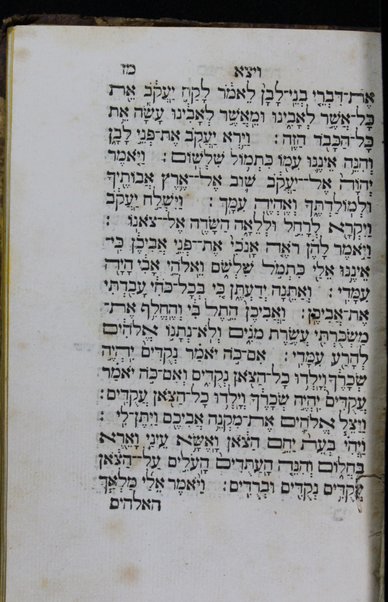 ויצא מז
אֶת־דִּבְרֵי בְנֵי־לָבָן לֵאמֹר לָקַח יַעֲקֹב אֵת
כָּל־אֲשֶׁר לְאָבִינוּ וּמֵאֲשֶׁר לְאָבִינוּ עָשָׂה אֵת
כָּל־הַכָּבֹד הַזֶּה׃ וַיַּרְא יַעֲקֹב אֶת־פְּנֵי לָבָן
וְהִנֵּה אֵינֶנּוּ עִמּוֹ כִּתְמוֹל שִׁלְשׁוֹם׃ וַיֹּאמֶר
יְהוָה אֶל־יַעֲקֹב שׁוּב אֶל־אֶרֶץ אֲבוֹתֶיךָ
וּלְמוֹלַדְתֶּךָ וְאֶהְיֶה עִמָּךְ׃ וַיִּשְׁלַח יַעֲקֹב
וַיִּקְרָא לְרָחֵל וּלְלֵאָה הַשָּׂדֶה אֶל־צֹאנוֹ׃
וַיֹּאמֶר לָהֶן רֹאֶה אָנֹכִי אֶת־פְּנֵי אֲבִיכֶן כִּי־
אֵינֶנּוּ אֵלַי כִּתְמֹל שִׁלְשֹׁם וֵאלֹהֵי אָבִי הָיָה
עִמָּדִי׃ וְאַתֵּנָה יְדַעְתֶּן כִּי בְּכָל־כֹּחִי עָבַדְתִּי
אֶת־אֲבִיכֶן׃ וַאֲבִיכֶן הֵתֶל בִּי וְהֶחֱלִף אֶת־
מַשְׂכֻּרְתִּי עֲשֶׂרֶת מֹנִים וְלֹא־נְתָנוֹ אֱלֹהִים
לְהָרַע עִמָּדִי׃ אִם־כֹּה יֹאמַר נְקֻדִּים יִהְיֶה
שְׂכָרֶךָ וְיָלְדוּ כָל־הַצֹּאן נְקֻדִּים וְאִם־כֹּה יֹאמַר
עֲקֻדִּים יִהְיֶה שְׂכָרֶךָ וְיָלְדוּ כָל־הַצֹּאן עֲקֻדִּים׃
וַיַּצֵּל אֱלֹהִים אֶת־מִקְנֵה אֲבִיכֶם וַיִּתֶּן־לִי׃
וַיְהִי בְּעֵת יַחֵם הַצֹּאן וָאֶשָּׂא עֵינַי וָאֵרֶא
בַּחֲלוֹם וְהִנֵּה הָעַתֻּדִים הָעֹלִים עַל־הַצֹּאן
עֲקֻדִּים נְקֻדִּים וּבְרֻדִּים׃ וַיֹּאמֶר אֵלַי מַלְאַךְ
האלהים